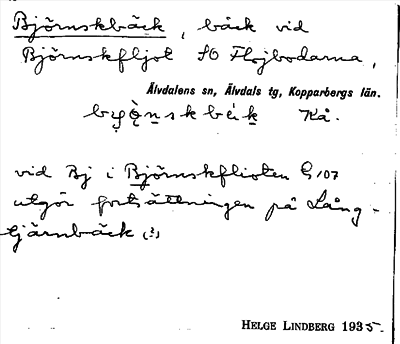 Björnskbäck, bäck vid
Björnskfljot SO Flojbodarna,
Älvdalens sn, Älvdals tg, Kopparbergs län.
Kå.
vid Bj i Björnskflioten G 107
utgör fortsättningen på Lång-
tjärnbäck (?)
HELGE LINDBERG 1935.